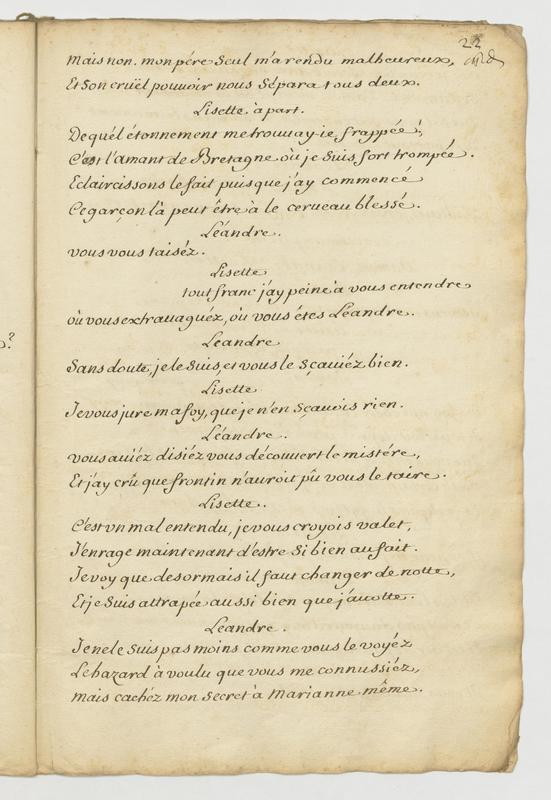 22
Mais non. mon pére seul m'a rendu malheureux,
Et son cruël pouvoir nous sépara tous deux.
Lisette à part.
De quél étonnement me trouvay-ie frappée!,
C'est l'amant de Bretagne où je suis fort trompée.
Eclaircissons le fait puis que j'ay commencé
Ce garçon là peut être à le cerueau blessé.
Léandre.
vous vous taiséz.
Lisette
tout franc j'ay peine à vous entendre
où vous extrauaguéz, où vous étes Léandre.
Leandre
?
Sans doute, je le suis, et vous le sçauiéz bien.
Lisette
Je vous jure ma foy, que je n'en sçauois rien.
Léandre.
vous auiéz disiéz vous découuert le mistére,
Et j'ay crû que frontin n'auroit pû vous le taire.
Lisette.
C'est vn mal entendu, je vous croyois valet,
J'enrage maintenant d'estre si bien au fait.
Je voy que desormais il faut changer de notte,
Et je suis attrapée aussi bien que jauotte.
Leandre.
Je ne le suis pas moins comme vous le voyéz
Le hazard à voulu que vous me connussiéz,
Mais cachéz mon secret à Marianne même.